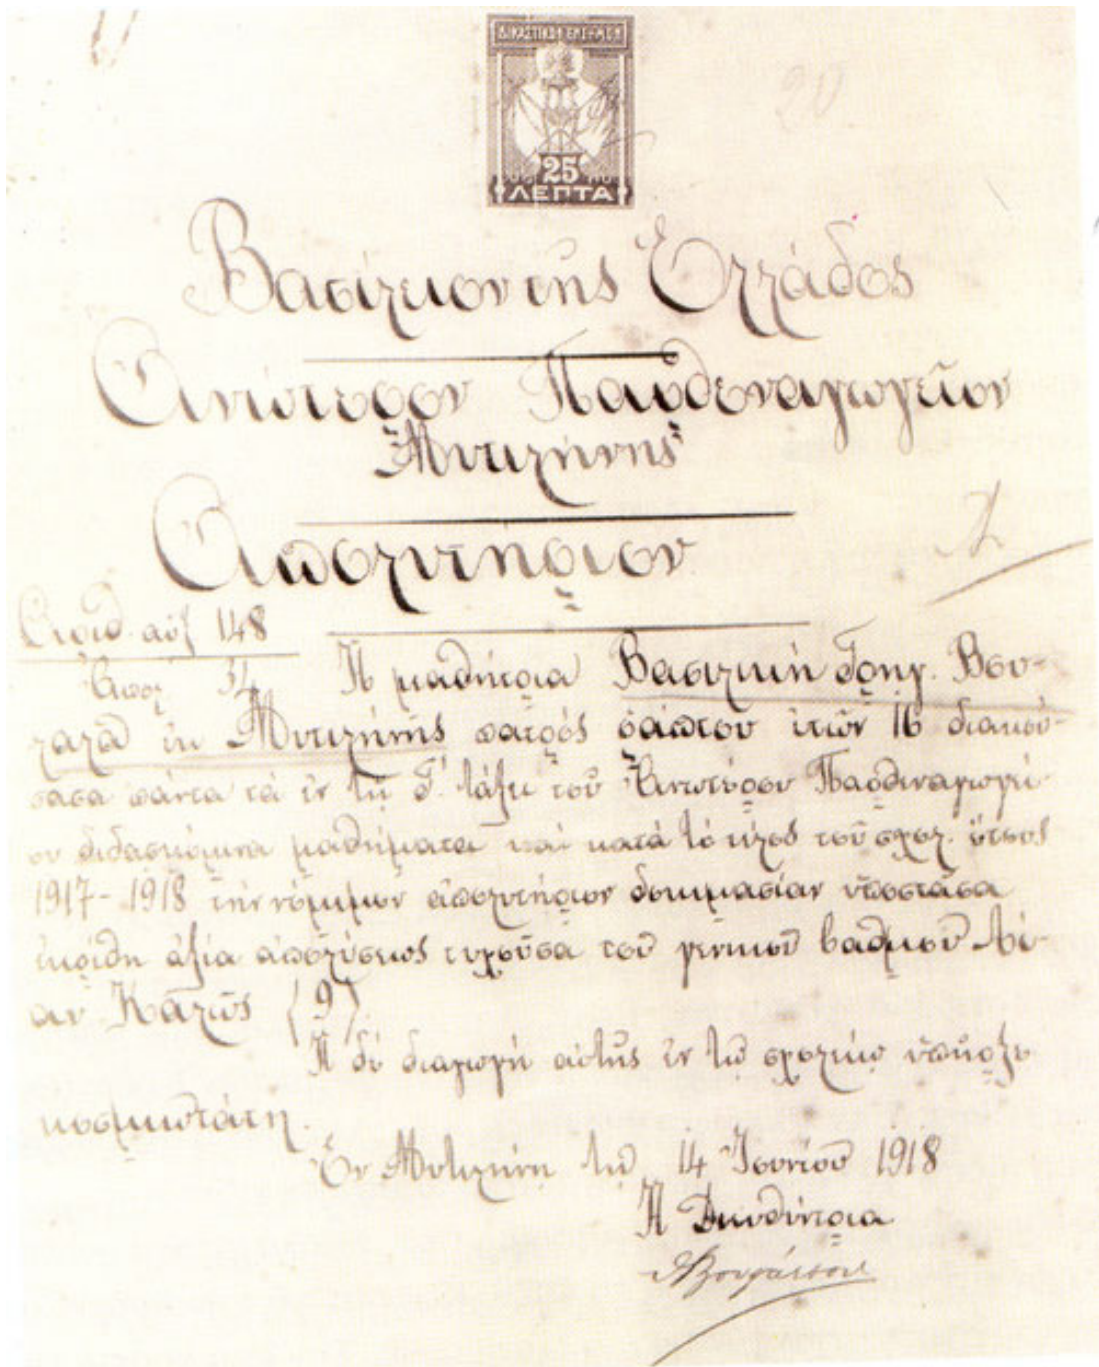 ΔΙΚΑΣΤΙΚΟΝ ΕΝΣΗΜΟΝ
20
25
ΛΕΠΤΑ
Βασίλειον τῆς Ἑλλάδος
Ἀνώτερον Παρθεναγωγεῖον
Μυτιλήνης
Ἀπολυτήριον
Ἀριθ. αὐξ 148
Ἀπολ 34 Ἡ μαθήτρια Βασιλική Γρηγ. Βου-
λαλᾶ ἐκ Μυτιλήνης πατρός ράπτου ἐτῶν 16 διακού-
σασα πάντα τά ἐν τῇ Γ΄. τάξει τοῦ Ἀνωτέρου Παρθεναγωγεί-
ου διδασκόμενα μαθήματα καί κατά τό τέλος τοῦ σχολ. ἔτους
1917-1918 τήν νόμιμον ἀπολυτήριον δοκιμασίαν ὑποστᾶσα
ἐκρίθη ἀξία ἀπολύσεως τυχοῦσα τοῦ γενικοῦ βαθμοῦ Λί-
αν Καλῶς (9)
Ἡ δέ διαγωγή αὐτῆς ἐν τῷ σχολείῳ ὑπῆρξε
κοσμιωτάτη.
Ἐν Μυτιλήνῃ τῇ 14 Ἰουνίου 1918
Ἡ Διευθύντρια